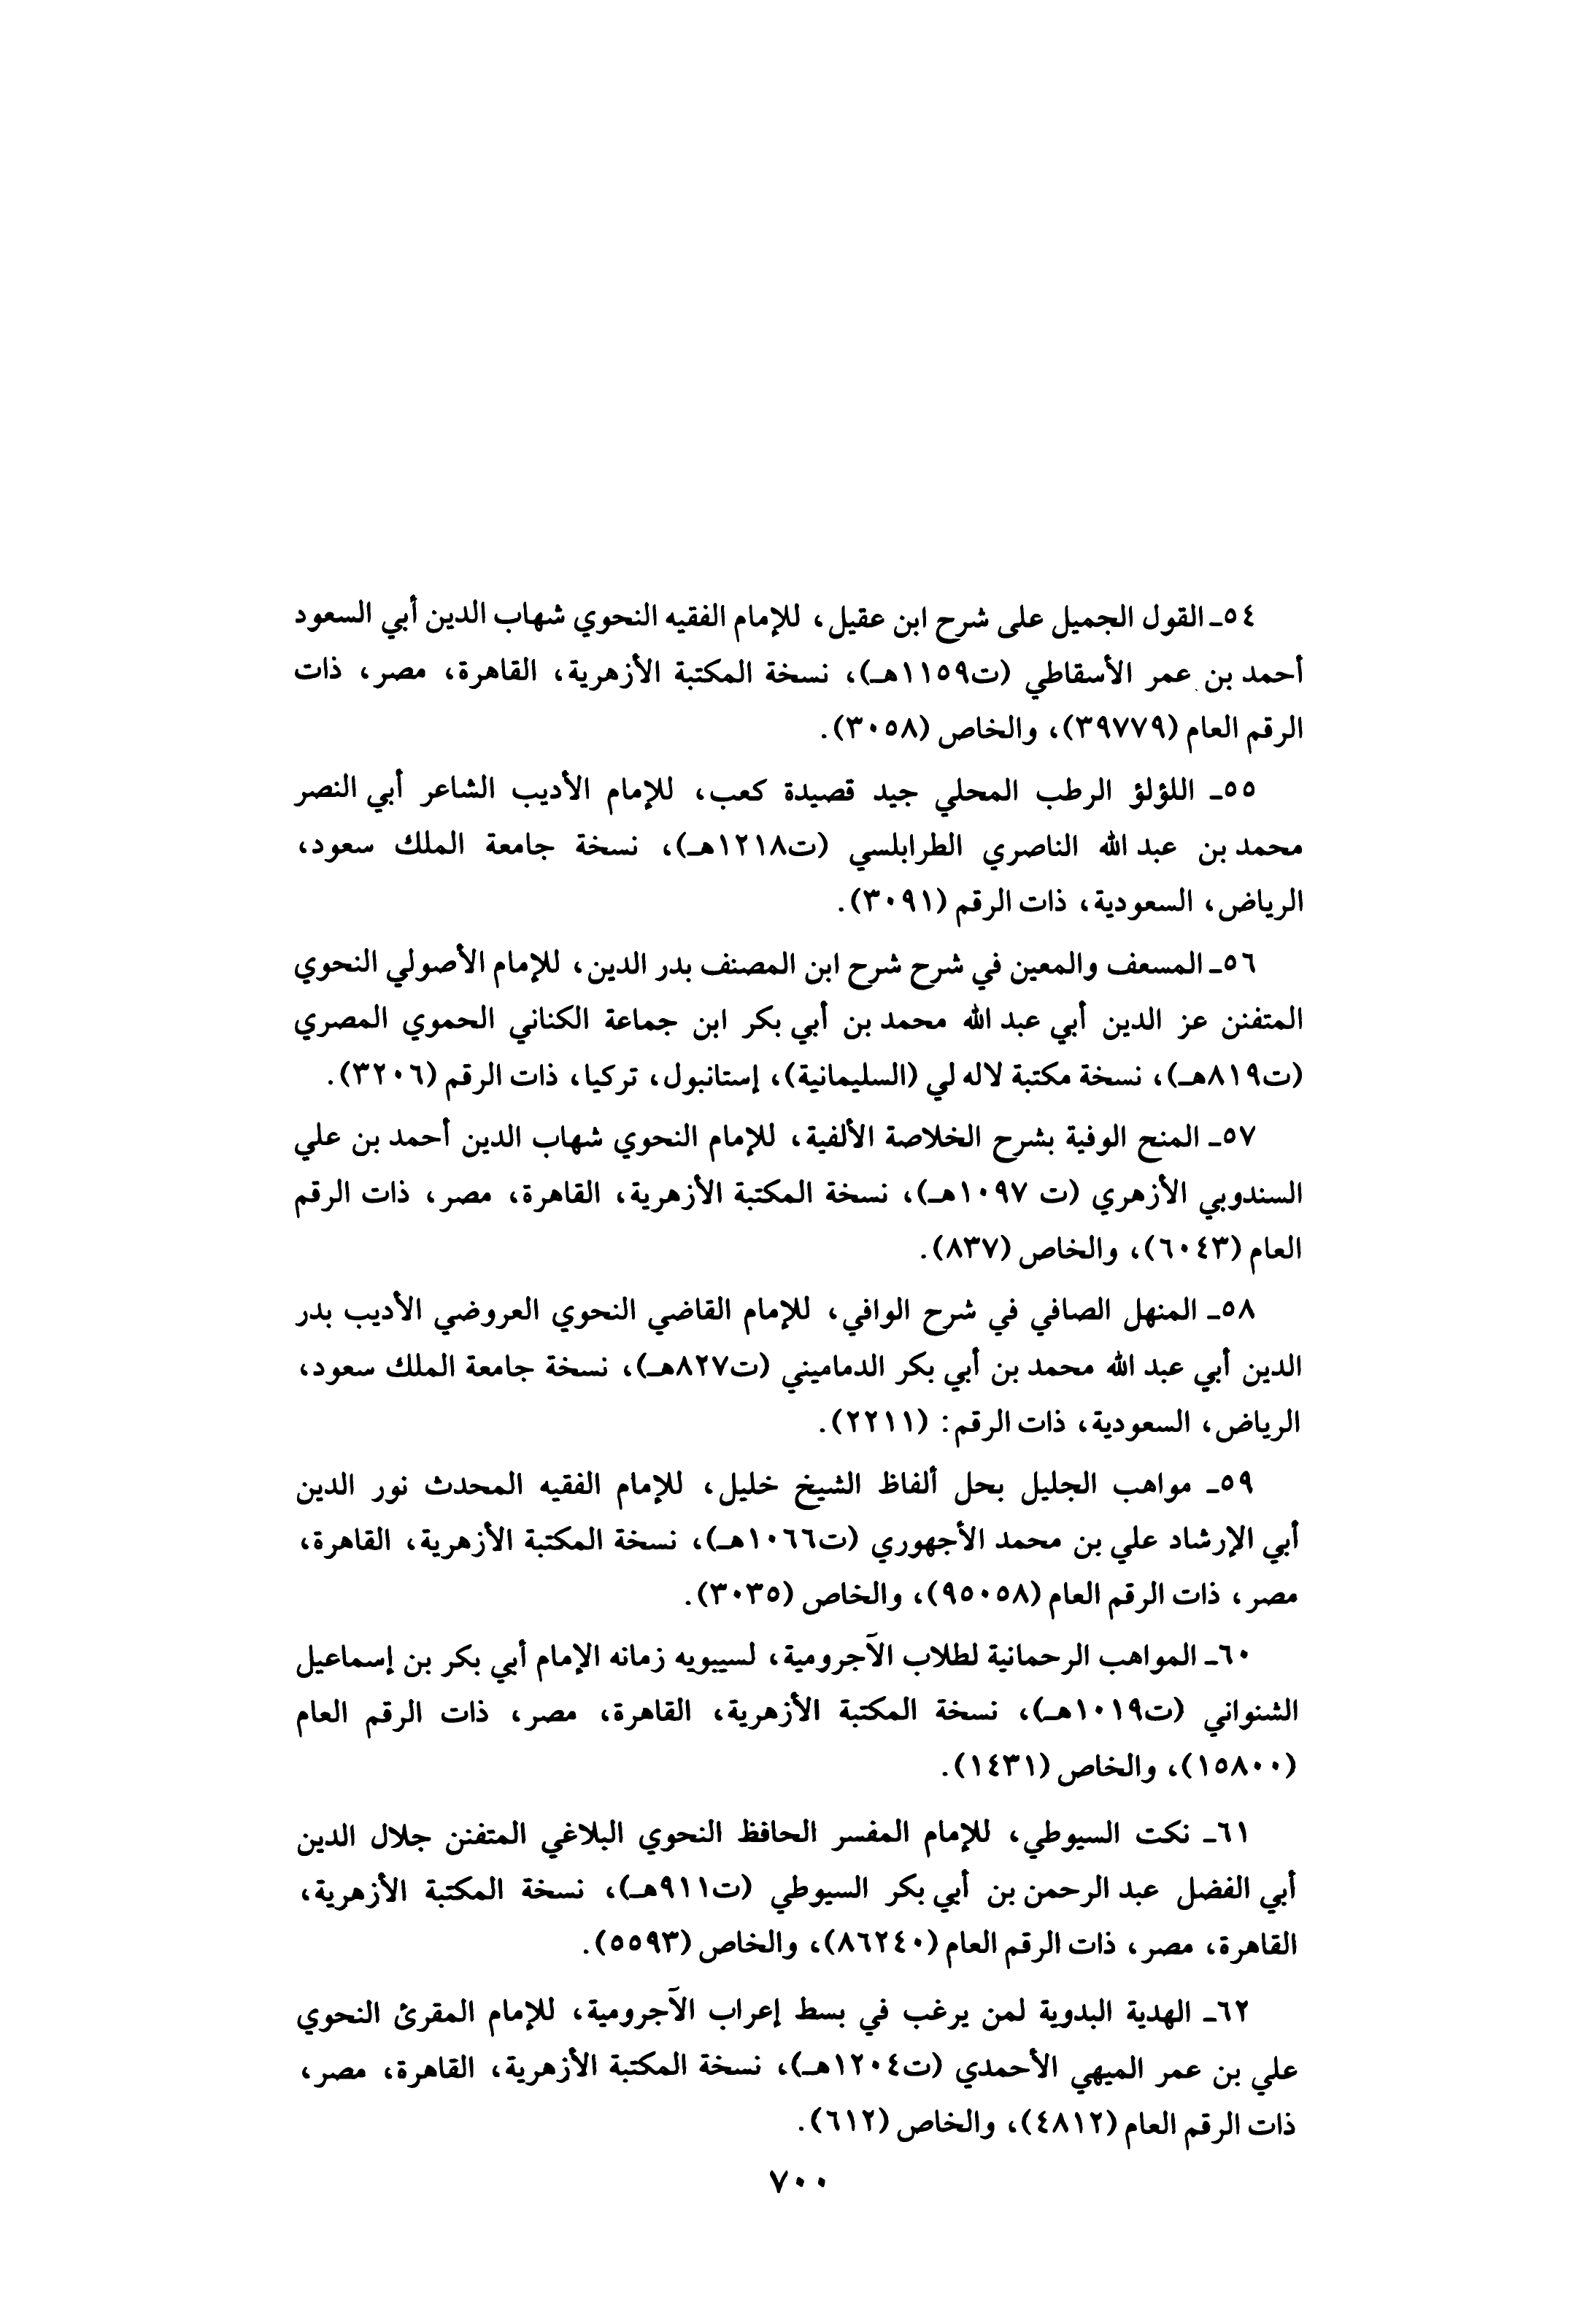 ٥٤ـ القول الجميل على شرح ابن عقيل، للإمام الفقيه النحوي شهاب الدين أبي السعود
أحمد بن عمر الأسقاطي (ت١١٥٩هـ)، نسخة المكتبة الأزهرية، القاهرة، مصر، ذات
الرقم العام (٣٩٧٧٩)، والخاص (٣٠٥٨).
٥٥ـ اللؤلؤ الرطب المحلي جيد قصيدة كعب، للإمام الأديب الشاعر أبي النصر
محمد بن عبد الله الناصري الطرابلسي (ت١٢١٨هـ)، نسخة جامعة الملك سعود،
الرياض، السعودية، ذات الرقم (٣٠٩١).
٥٦ـ المسعف والمعين في شرح شرح ابن المصنف بدر الدين، للإمام الأصولي النحوي
المتفنن عز الدين أبي عبد الله محمد بن أبي بكر ابن جماعة الكناني الحموي المصري
(ت٨١٩هـ)، نسخة مكتبة لاله لي (السليمانية)، إستانبول، تركيا، ذات الرقم (٣٢٠٦).
٥٧ـ المنح الوفية بشرح الخلاصة الألفية، للإمام النحوي شهاب الدين أحمد بن علي
السندوبي الأزهري (ت ١٠٩٧هـ)، نسخة المكتبة الأزهرية، القاهرة، مصر، ذات الرقم
العام (٦٠٤٣)، والخاص (٨٣٧).
٥٨ـ المنهل الصافي في شرح الوافي، للإمام القاضي النحوي العروضي الأديب بدر
الدين أبي عبد الله محمد بن أبي بكر الدماميني (ت٨٢٧هـ)، نسخة جامعة الملك سعود،
الرياض، السعودية، ذات الرقم: (٢٢١١).
٥٩ـ مواهب الجليل بحل ألفاظ الشيخ خليل، للإمام الفقيه المحدث نور الدين
أبي الإرشاد علي بن محمد الأجهوري (ت١٠٦٦هـ)، نسخة المكتبة الأزهرية، القاهرة،
مصر، ذات الرقم العام (٩٥٠٥٨)، والخاص (٣٠٣٥).
٦٠ـ المواهب الرحمانية لطلاب الآجرومية، لسيبويه زمانه الإمام أبي بكر بن إسماعيل
الشنواني (ت١٠١٩هـ)، نسخة المكتبة الأزهرية، القاهرة، مصر، ذات الرقم العام
(١٥٨٠٠)، والخاص (١٤٣١).
٦١ـ نكت السيوطي، للإمام المفسر الحافظ النحوي البلاغي المتفنن جلال الدين
أبي الفضل عبد الرحمن بن أبي بكر السيوطي (ت٩١١هـ)، نسخة المكتبة الأزهرية،
القاهرة، مصر، ذات الرقم العام (٨٦٢٤٠)، والخاص (٥٥٩٣).
٦٢ـ الهدية البدوية لمن يرغب في بسط إعراب الآجرومية، للإمام المقرئ النحوي
علي بن عمر الميهي الأحمدي (ت١٢٠٤هـ)، نسخة المكتبة الأزهرية، القاهرة، مصر،
ذات الرقم العام (٤٨١٢)، والخاص (٦١٢).
٧٠٠